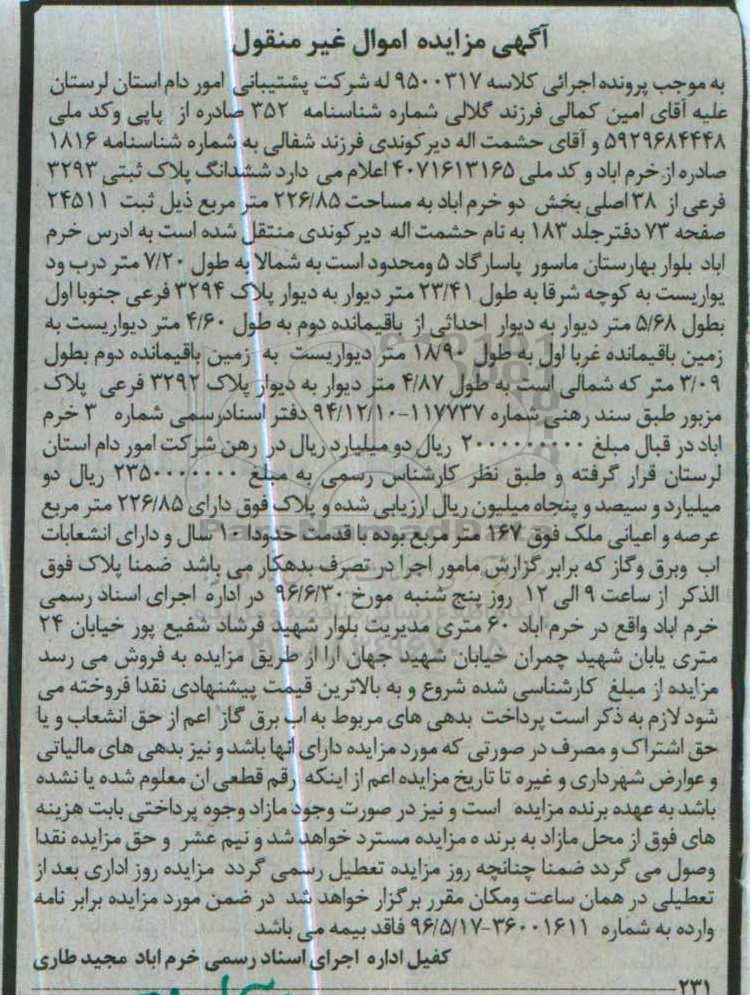 آگهی مزایده اموال غیر منقول
به موجب پرونده اجرائی کلاسه ۹۵۰۰۳۱۷ له شرکت پشتیبانی امور دام استان لرستان
علیه آقای امین کمالی فرزند گلالی شماره شناسنامه ۳۵۲ صادره از پاپی وکد ملی
۵۹۲۹۶۸۴۴۴۸ و آقای حشمت اله دیرکوندی فرزند شفالی به شماره شناسنامه ۱۸۱۶
صادره از خرم اباد و کد ملی ۴۰۷۱۶۱۳۱۶۵ اعلام می دارد ششدانگ پلاک ثبتی ۳۲۹۳
فرعی از ۳۸ اصلی بخش دو خرم اباد به مساحت ۲۲۶/۸۵ متر مربع ذیل ثبت ۲۴۵۱۱
صفحه ۷۳ دفترجلد ۱۸۳ به نام حشمت اله دیرکوندی منتقل شده است به ادرس خرم
اباد بلوار بهارستان ماسور پاسارگاد ۵ ومحدود است به شمالا به طول ۷/۲۰ متر درب ود
یواریست به کوچه شرقا به طول ۲۳/۴۱ متر دیوار به دیوار پلاک ۳۲۹۴ فرعی جنوبا اول
بطول ۵/۶۸ متر دیوار به دیوار احداثی از باقیمانده دوم به طول ۴/۶۰ متر دیواریست به
زمین باقیمانده غربا اول به طول ۱۸/۹۰ متر دیواریست به زمین باقیمانده دوم بطول
۳/۰۹ متر که شمالی است به طول ۴/۸۷ متر دیوار به دیوار پلاک ۳۲۹۲ فرعی پلاک
مزبور طبق سند رهنی شماره ۱۱۷۷۳۷-۹۴/۱۲/۱۰ دفتر اسنادرسمی شماره ۳ خرم
اباد در قبال مبلغ ۲۰۰۰۰۰۰۰۰۰ ریال دو میلیارد ریال در رهن شرکت امور دام استان
لرستان قرار گرفته و طبق نظر کارشناس رسمی به مبلغ ۲۳۵۰۰۰۰۰۰۰ ریال دو
میلیارد و سیصد و پنجاه میلیون ریال ارزیابی شده و پلاک فوق دارای ۲۲۶/۸۵ متر مربع
عرصه و اعیانی ملک فوق ۱۶۷ متر مربع بوده با قدمت حدودا ۱۰ سال و دارای انشعابات
اب وبرق وگاز که برابر گزارش مامور اجرا در تصرف بدهکار می باشد ضمنا پلاک فوق
الذکر از ساعت ۹ الی ۱۲ روز پنج شنبه مورخ ۹۶/۶/۳۰ در اداره اجرای اسناد رسمی
خرم اباد واقع در خرم اباد ۶۰ متری مدیریت بلوار شهید فرشاد شفیع پور خیابان ۲۴
متری یابان شهید چمران خیابان شهید جهان ارا از طریق مزایده به فروش می رسد
مزایده از مبلغ کارشناسی شده شروع و به بالاترین قیمت پیشنهادی نقدا فروخته می
شود لازم به ذکر است پرداخت بدهی های مربوط به اب برق گاز اعم از حق انشعاب و یا
حق اشتراک و مصرف در صورتی که مورد مزایده دارای انها باشد و نیز بدهی های مالیاتی
و عوارض شهرداری و غیره تا تاریخ مزایده اعم از اینکه رقم قطعی ان معلوم شده یا نشده
باشد به عهده برنده مزایده است و نیز در صورت وجود مازاد وجوه پرداختی بابت هزینه
های فوق از محل مازاد به برند ه مزایده مسترد خواهد شد و نیم عشر و حق مزایده نقدا
وصول می گردد ضمنا چنانچه روز مزایده تعطیل رسمی گردد مزایده روز اداری بعد از
تعطیلی در همان ساعت ومکان مقرر برگزار خواهد شد در ضمن مورد مزایده برابر نامه
وارده به شماره ۳۶۰۰۱۶۱۱-۹۶/۵/۱۷ فاقد بیمه می باشد
کفیل اداره اجرای اسناد رسمی خرم اباد مجید طاری
۲۳۱
ParsNamadData